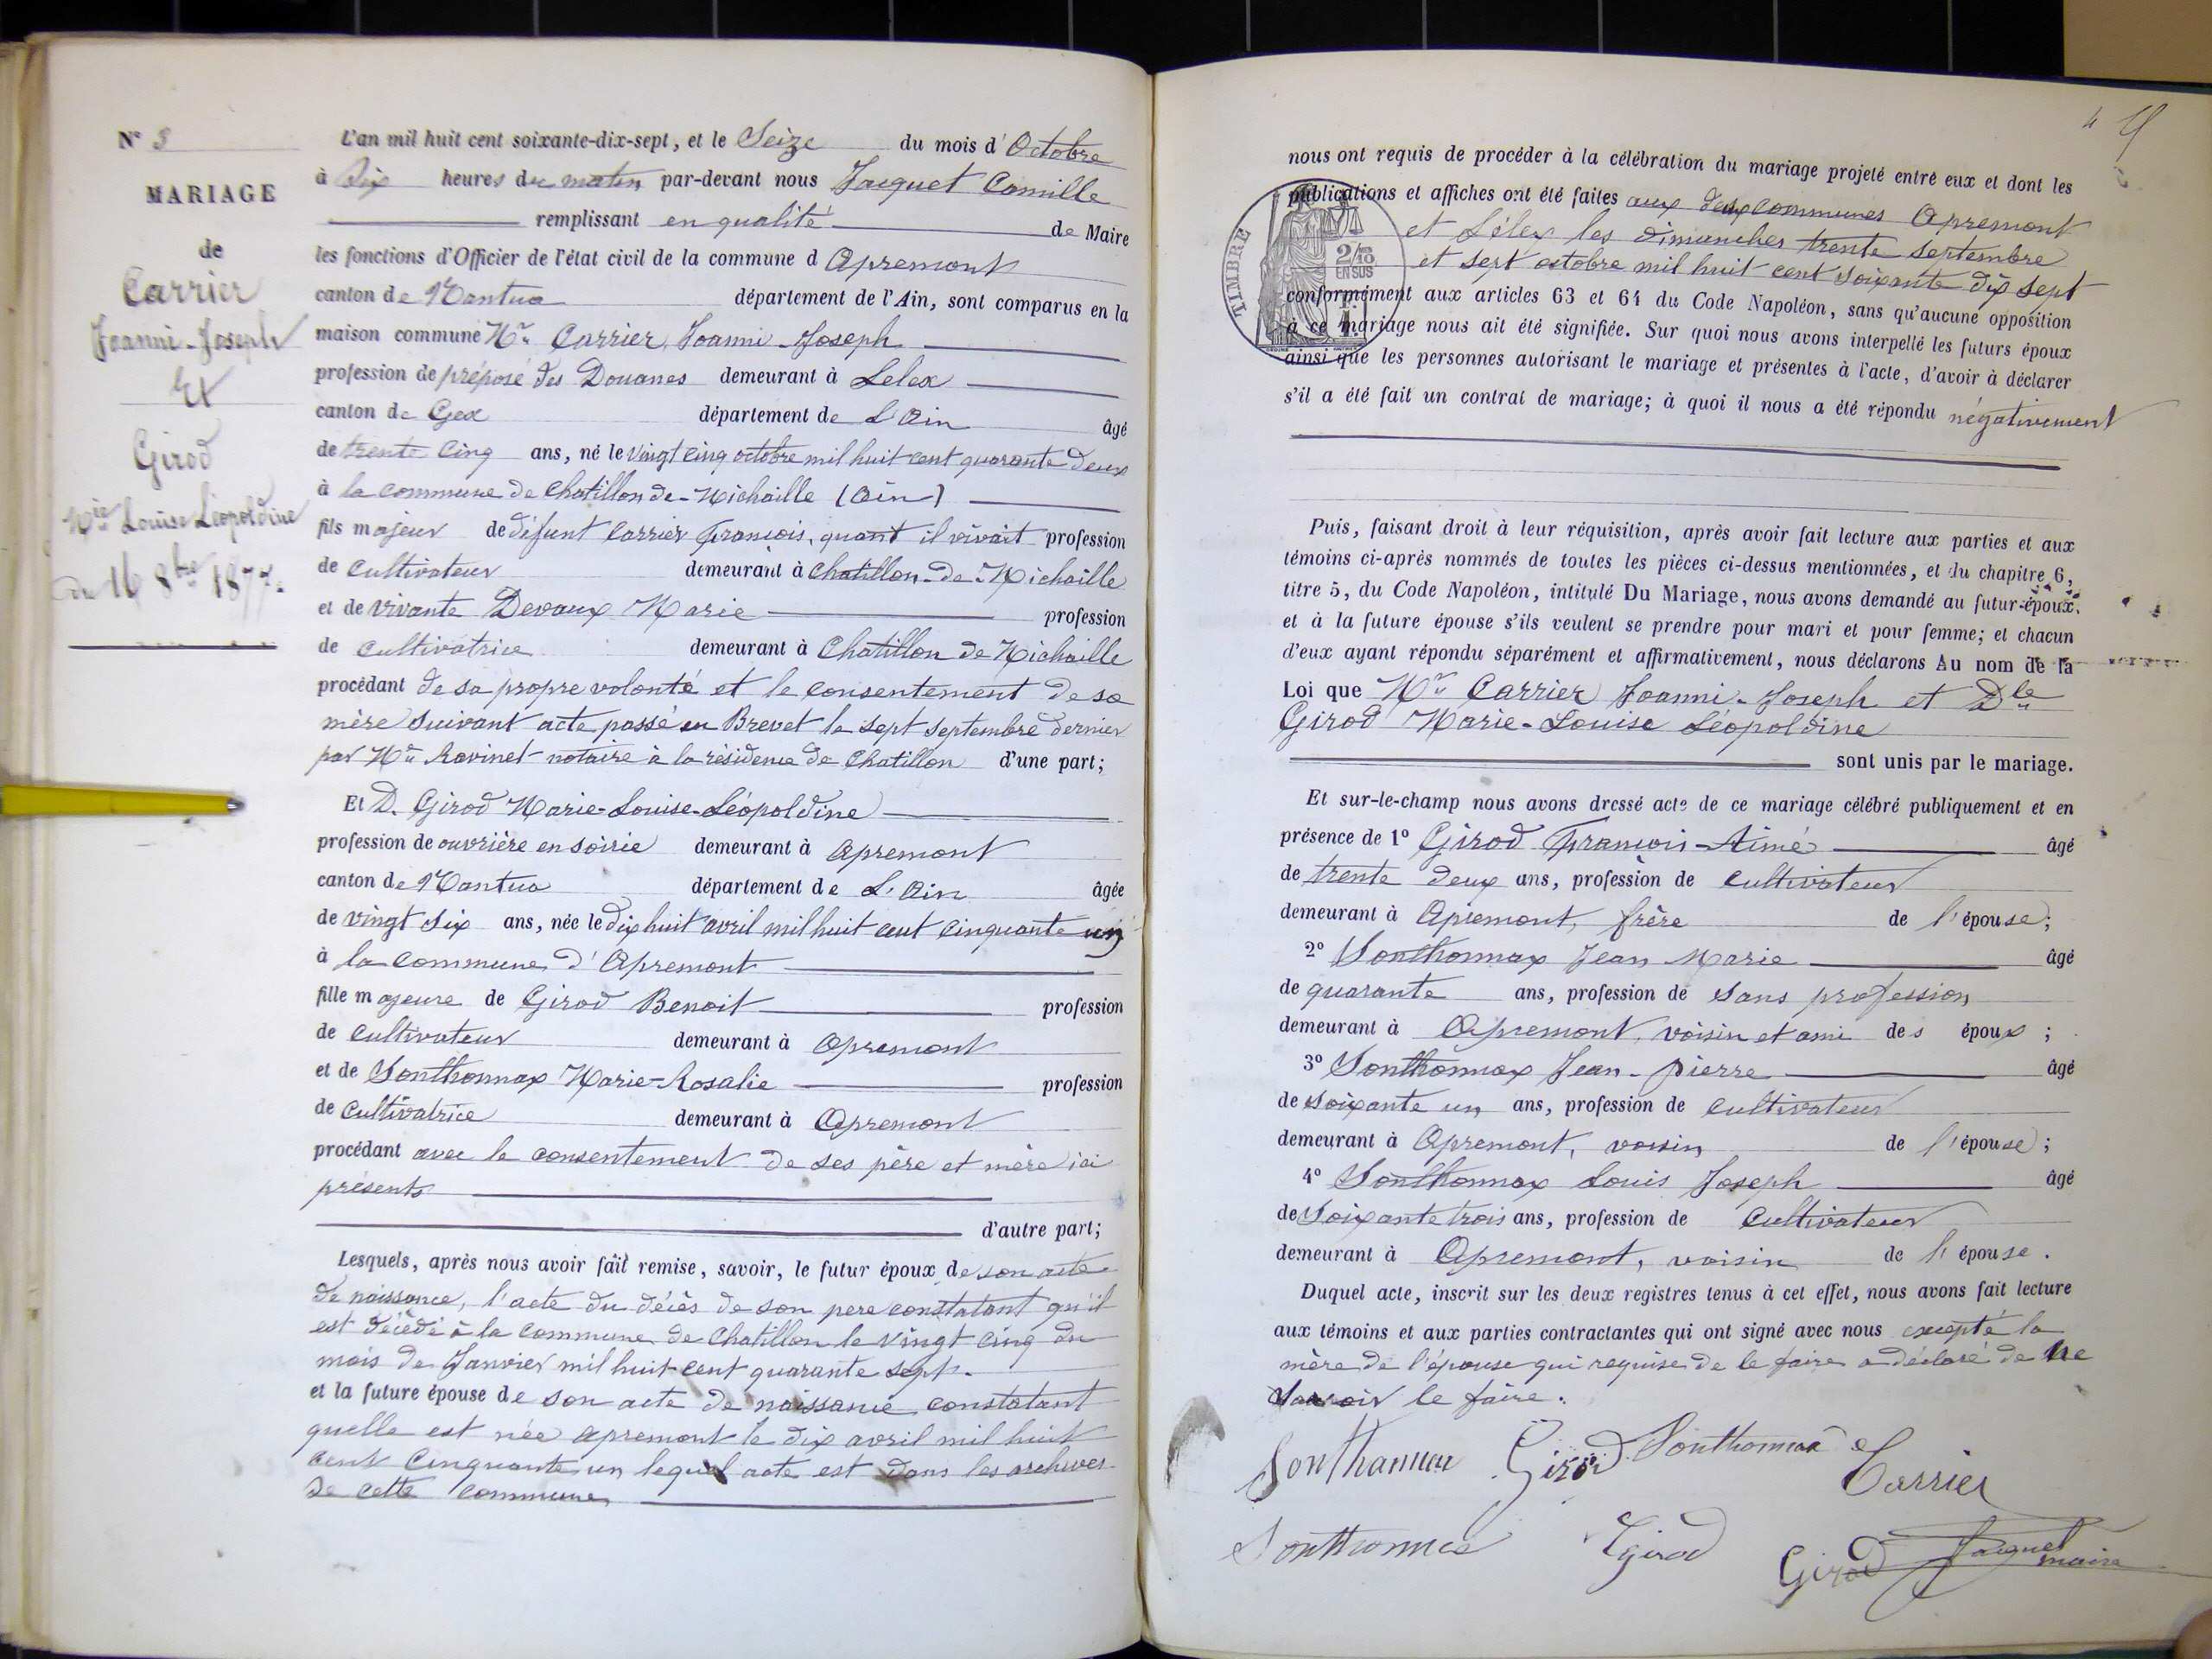 N° 3
MARIAGE
de
Carrier
Joanni-Joseph
Et
Girod
Mie Louise Léopoldine
du 16 8bre 1877.
L'an mil huit cent soixante-dix-sept, et le Seize du mois d'Octobre
à Dix heures du matin par-devant nous Jacquet Camille
remplissant en qualité de Maire
les fonctions d'Officier de l'état civil de la commune d Apremont
canton de Nantua département de l'Ain, sont comparus en la
maison commune Mr Carrier, Joanni-Joseph
profession de préposé des Douanes demeurant à Lelex
canton de Gex département de L'Ain âgé
de trente cinq ans, né le vingt cinq octobre mil huit cent quarante deux
à la commune de Chatillon de-Michaille (Ain)
fils majeur de défunt Carrier François, quant il vivait profession
de cultivateur demeurant à Chatillon-de-Michaille
et de vivante Devaux Marie profession
de cultivatrice demeurant à Chatillon de Michaille
procédant de sa propre volonté et le consentement de sa
mère suivant acte passé en Brevet le sept septembre dernier
par Me Ravinet notaire à la résidence de Chatillon d'une part;
Et D. Girod Marie-Louise-Léopoldine
profession de ouvrière en soirie demeurant à Apremont
canton de Nantua département de L'Ain âgée
de vingt six ans, née le dix huit avril mil huit cent cinquante un
à la commune d'Apremont
fille majeure de Girod Benoit profession
de cultivateur demeurant à Apremont
et de Sonthonnax Marie-Rosalie profession
de cultivatrice demeurant à Apremont
procédant avec le consentement de ses père et mère ici
présents
d'autre part;
Lesquels, après nous avoir fait remise, savoir, le futur époux de son acte
de naissance, l'acte du décès de son pere constatant qu'il
est décédé à la commune de Chatillon le vingt cinq du
mois de Janvier mil huit cent quarante sept.
et la future épouse de son acte de naissance constatant
quelle est née apremont le dix avril mil huit
cent cinquante un lequel acte est dans les archives
de cette commune
4
nous ont requis de procéder à la célébration du mariage projeté entre eux et dont les
publications et affiches ont été faites aux deux communes Apremont
et Lélex les dimanches trente septembre
et sept octobre mil huit cent soixante dix sept
conformément aux articles 63 et 64 du Code Napoléon, sans qu'aucune opposition
à ce mariage nous ait été signifiée. Sur quoi nous avons interpellé les futurs époux
ainsi que les personnes autorisant le mariage et présentes à l'acte, d'avoir à déclarer
s'il a été fait un contrat de mariage; à quoi il nous a été répondu négativement
TIMBRE
2/10
EN SUS
Puis, faisant droit à leur réquisition, après avoir fait lecture aux parties et aux
témoins ci-après nommés de toutes les pièces ci-dessus mentionnées, et du chapitre 6,
titre 5, du Code Napoléon, intitulé Du Mariage, nous avons demandé au futur-époux
et à la future épouse s'ils veulent se prendre pour mari et pour femme; et chacun
d'eux ayant répondu séparément et affirmativement, nous déclarons Au nom de la
Loi que Mr Carrier Joanni-Joseph et Dle
Girod Marie-Louise Léopoldine
sont unis par le mariage.
Et sur-le-champ nous avons dressé acte de ce mariage célébré publiquement et en
présence de 1° Girod François-Aimé âgé
de trente deux ans, profession de cultivateur
demeurant à Apremont, frère de l'épouse;
2° Sonthonnax Jean Marie âgé
de quarante ans, profession de sans profession
demeurant à Apremont, voisin et ami des époux;
3° Sonthonnax Jean-pierre âgé
de soixante un ans, profession de cultivateur
demeurant à Apremont, voisin de l'épouse;
4° Sonthonnax Louis Joseph âgé
de Soixante trois ans, profession de cultivateur
demeurant à Apremont, voisin de l'épouse.
Duquel acte, inscrit sur les deux registres tenus à cet effet, nous avons fait lecture
aux témoins et aux parties contractantes qui ont signé avec nous excepté la
mère de l'épouse qui requise de le faire a déclaré de ne
savoir le faire.
Girod Sonthonnax Carrier
Girod Girod Jacquet maire